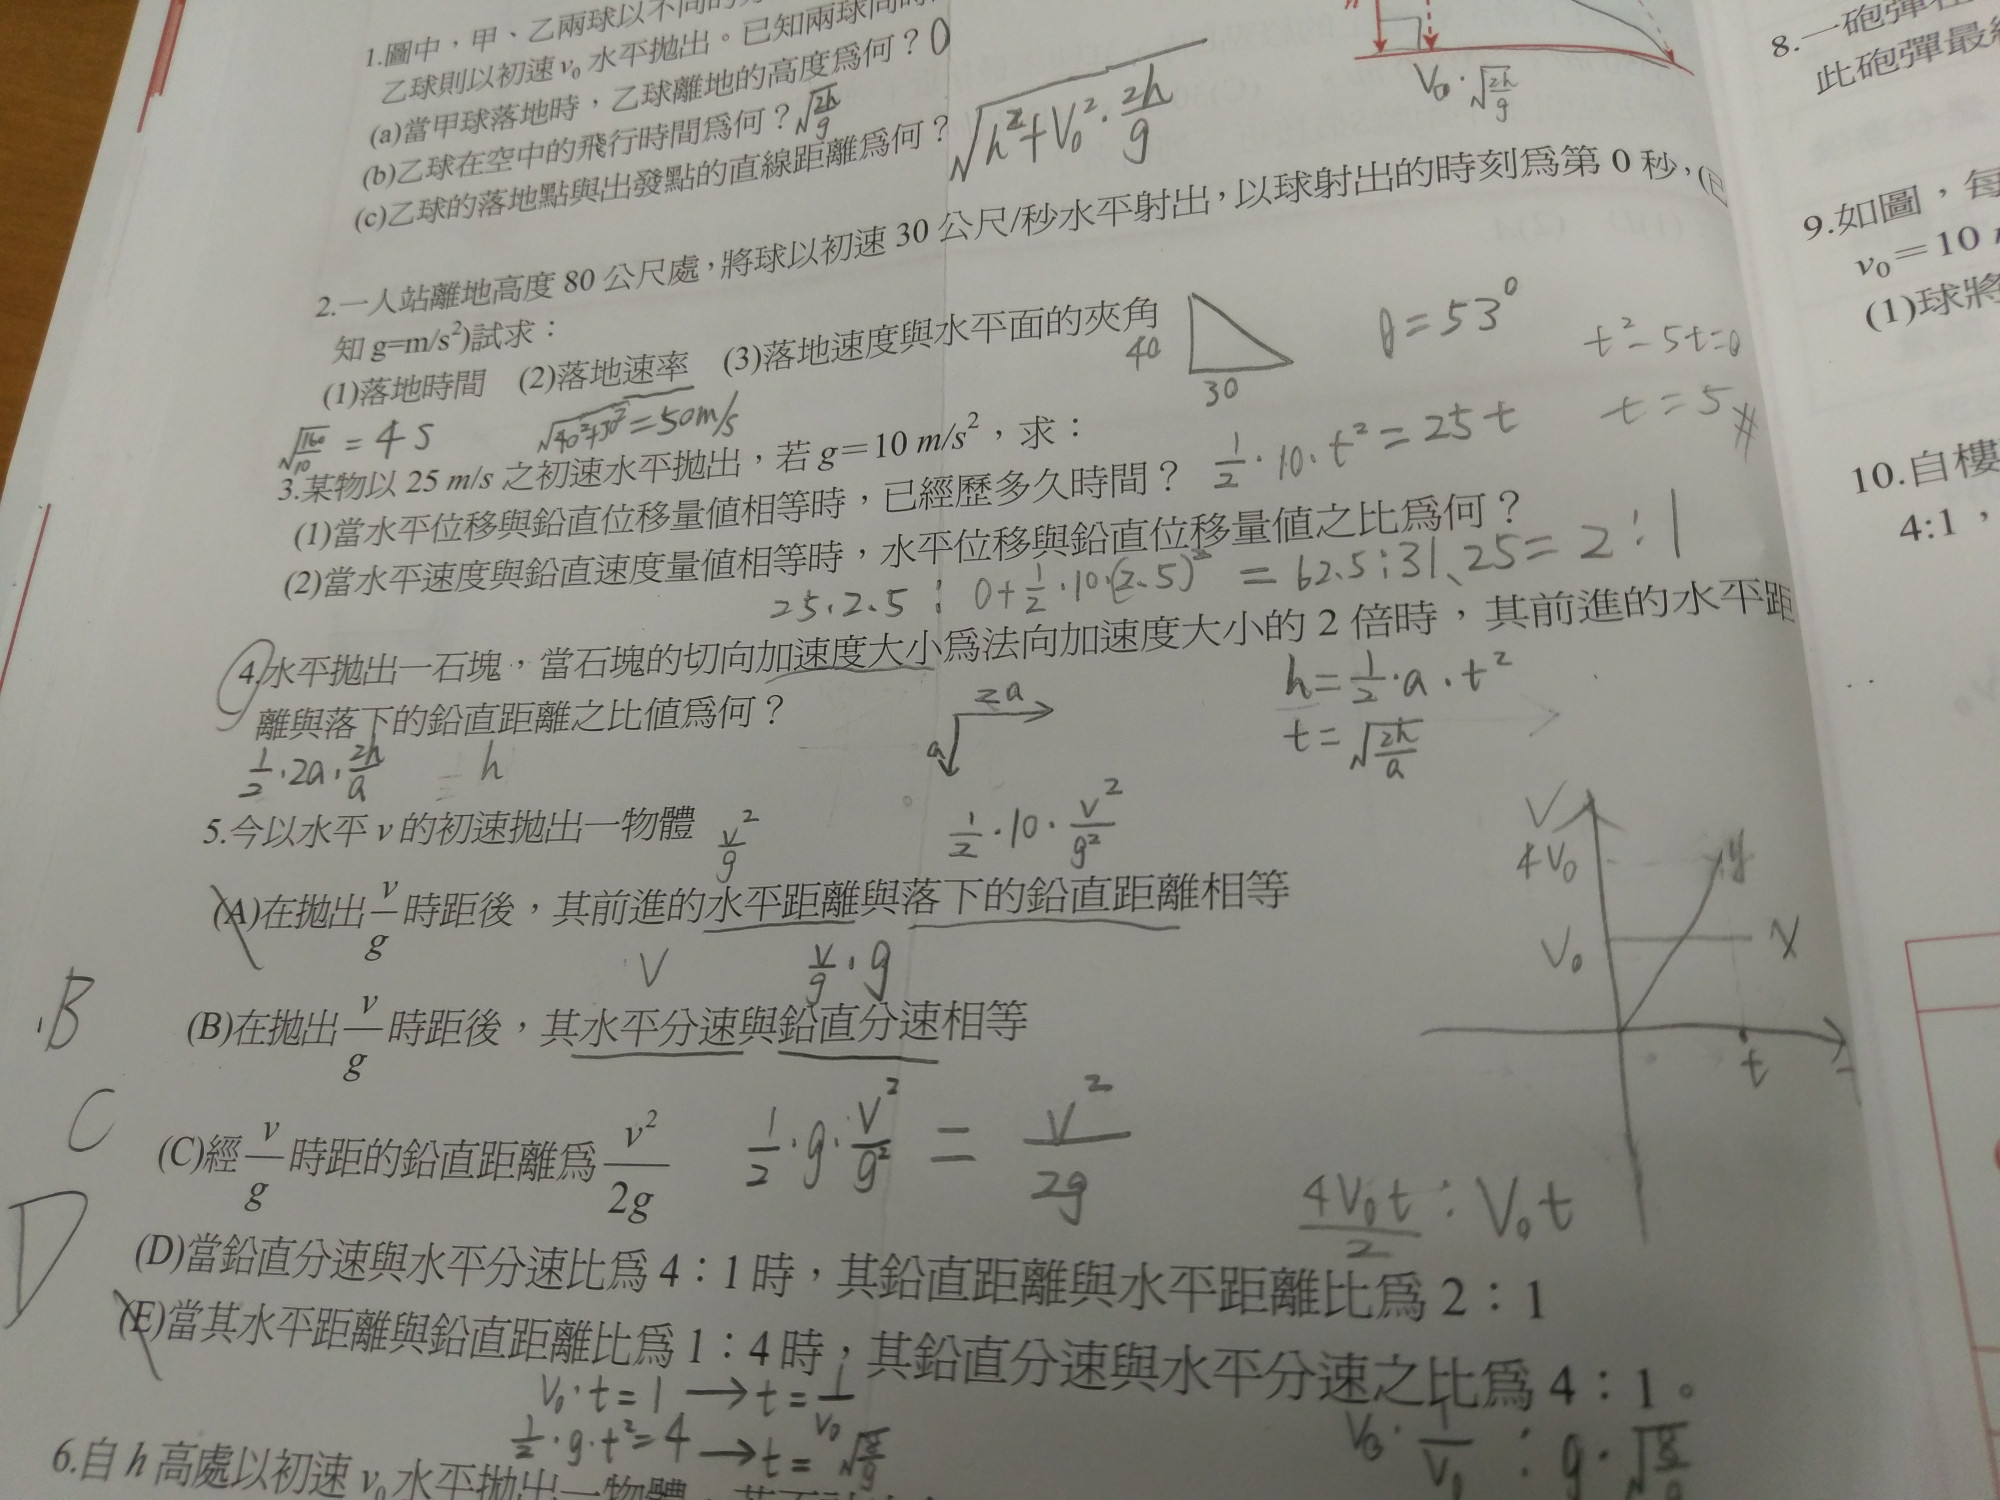 1.圖中，甲、乙兩球以不同的
乙球則以初速v₀水平拋出。已知兩球同時
(a)當甲球落地時，乙球離地的高度爲何？0
(b)乙球在空中的飛行時間爲何？√(2h/g)
(c)乙球的落地點與出發點的直線距離爲何？√(h²+V₀²·2h/g)
V₀·√(2h/g)
2.一人站離地高度 80 公尺處，將球以初速 30 公尺/秒水平射出，以球射出的時刻爲第 0 秒，(已
知 g=m/s²)試求：
(1)落地時間 (2)落地速率 (3)落地速度與水平面的夾角
40
30
θ=53°
√(160/10) = 4 s
√(40²+30²)=50m/s
3.某物以 25 m/s 之初速水平拋出，若 g＝10 m/s²，求：
(1)當水平位移與鉛直位移量值相等時，已經歷多久時間？
1/2·10·t²=25t
t²-5t=0
t=5#
(2)當水平速度與鉛直速度量值相等時，水平位移與鉛直位移量值之比爲何？
25·2.5 : 0+1/2·10·(2.5)² = 62.5:31.25=2:1
4.水平拋出一石塊，當石塊的切向加速度大小爲法向加速度大小的 2 倍時，其前進的水平距
離與落下的鉛直距離之比值爲何？
1/2·2a·2h/a h
2a
a
h=1/2·a·t²
t=√(2h/a)
5.今以水平 v 的初速拋出一物體
v²/g
1/2·10·v²/g²
(A)在拋出 v/g 時距後，其前進的水平距離與落下的鉛直距離相等
V v/g·g
(B)在拋出 v/g 時距後，其水平分速與鉛直分速相等
B
C
D
(C)經 v/g 時距的鉛直距離爲 v²/2g
1/2·g·V²/g² = V²/2g
V
4V₀
y
V₀
X
t
4V₀t/2 : V₀t
(D)當鉛直分速與水平分速比爲 4：1 時，其鉛直距離與水平距離比爲 2：1
(E)當其水平距離與鉛直距離比爲 1：4 時，其鉛直分速與水平分速之比爲 4：1。
V₀·t=1 → t=1/V₀
1/2·g·t²=4 → t=√(8/g)
V₀·1/V₀ : g·√(8/g)
6.自 h 高處以初速 v₀ 水平拋出一物體，
8.一砲彈在
此砲彈最終
9.如圖，每
v₀＝10
(1)球將
10.自樓
4:1，